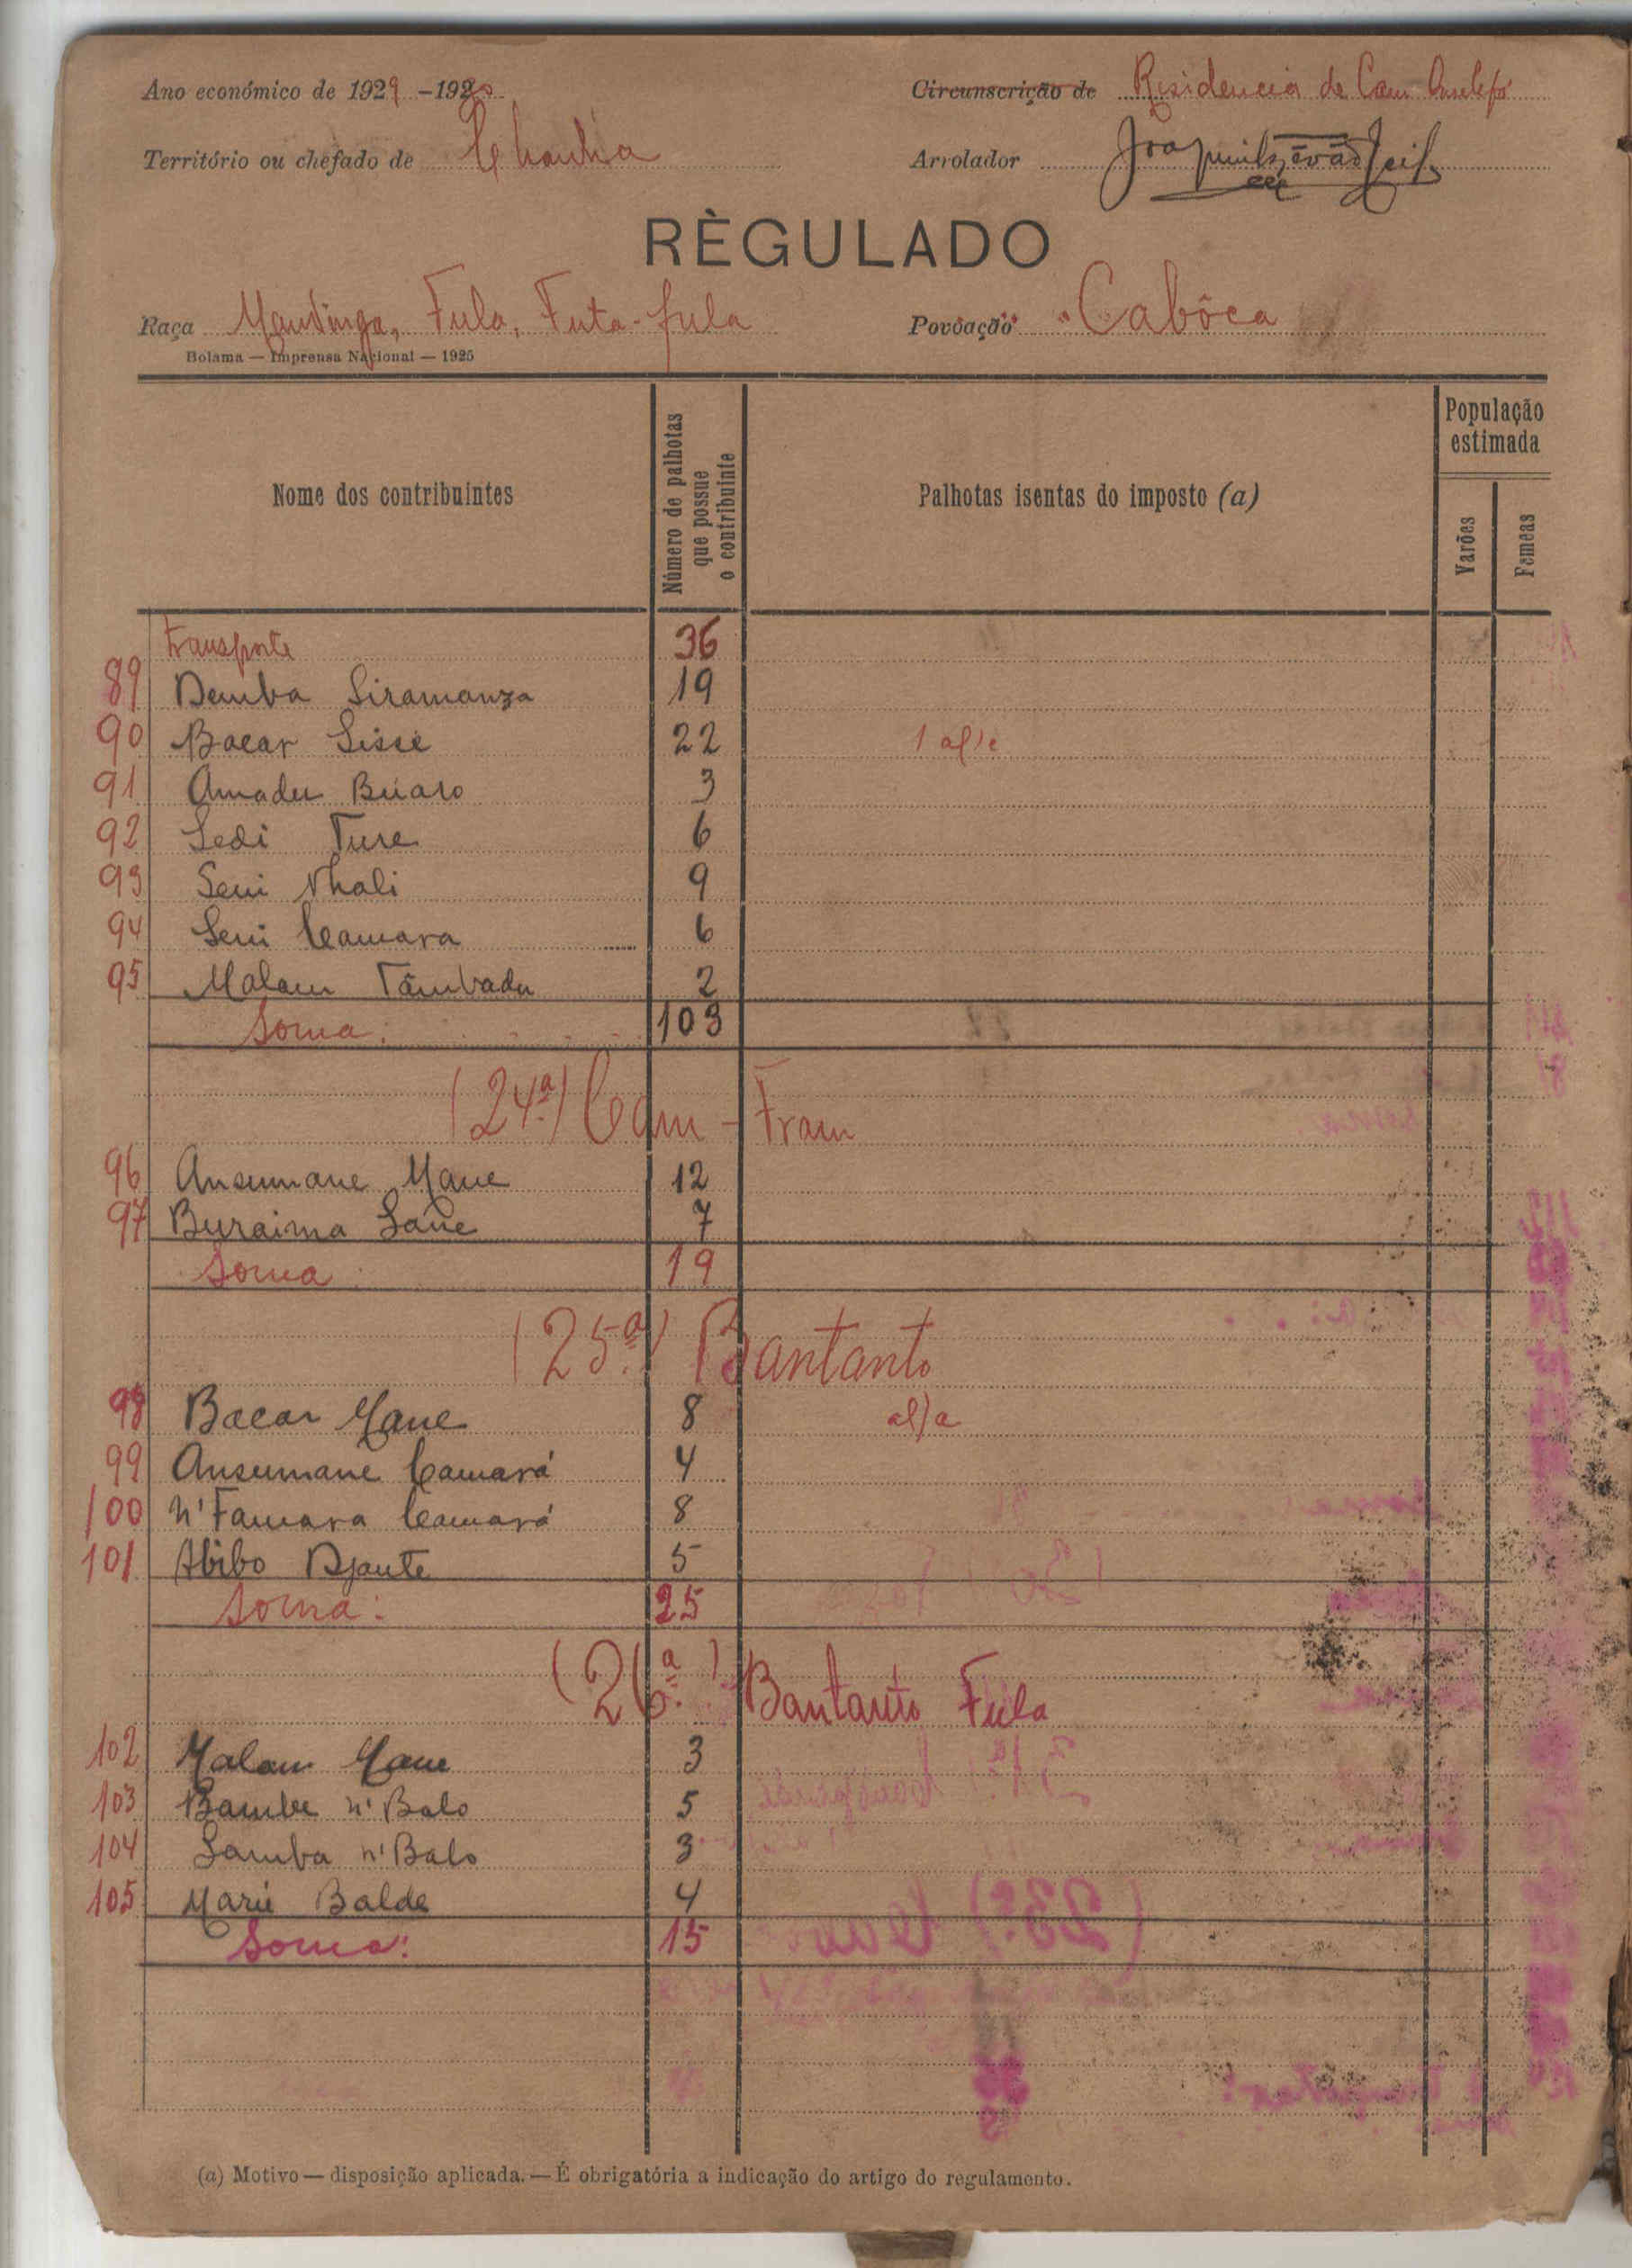 Ano económico de 1929-1930
Circunscrição de Residencia de Cam
Território ou chefado de Chanha
Arrolador
RÈGULADO
Raça Mandinga, Fula, Futa-fula
Povoação "Cabôca
Bolama — Imprensa Nacional — 1925
Nome dos contribuintes
Número de palhotas que possue o contribuinte
Palhotas isentas do imposto (a)
População estimada
Varões
Femeas
Transporte 36
89 Demba Siramanza 19
90 Bacar Sissé 22 1
91 Amadu Búaro 3
92 Sedi Ture 6
93 Seni Nhali 9
94 Seni Camara 6
95 Malam Tâmbadu 2
Soma: 103
(24ª) Cam-Fram
96 Ansumane Mane 12
97 Buraima Sane 7
Soma 19
(25ª) Bantanto
98 Bacar Mane 8
99 Ansumane Camará 4
100 N'Famara Camará 8
101 Abibo Djante 5
Soma: 25
(26ª) Bantanto Fula
102 Malam Mane 3
103 Bambe n'Balo 5
104 Samba n'Balo 3
105 Marié Balde 4
Soma: 15
(a) Motivo — disposição aplicada. — É obrigatória a indicação do artigo do regulamento.